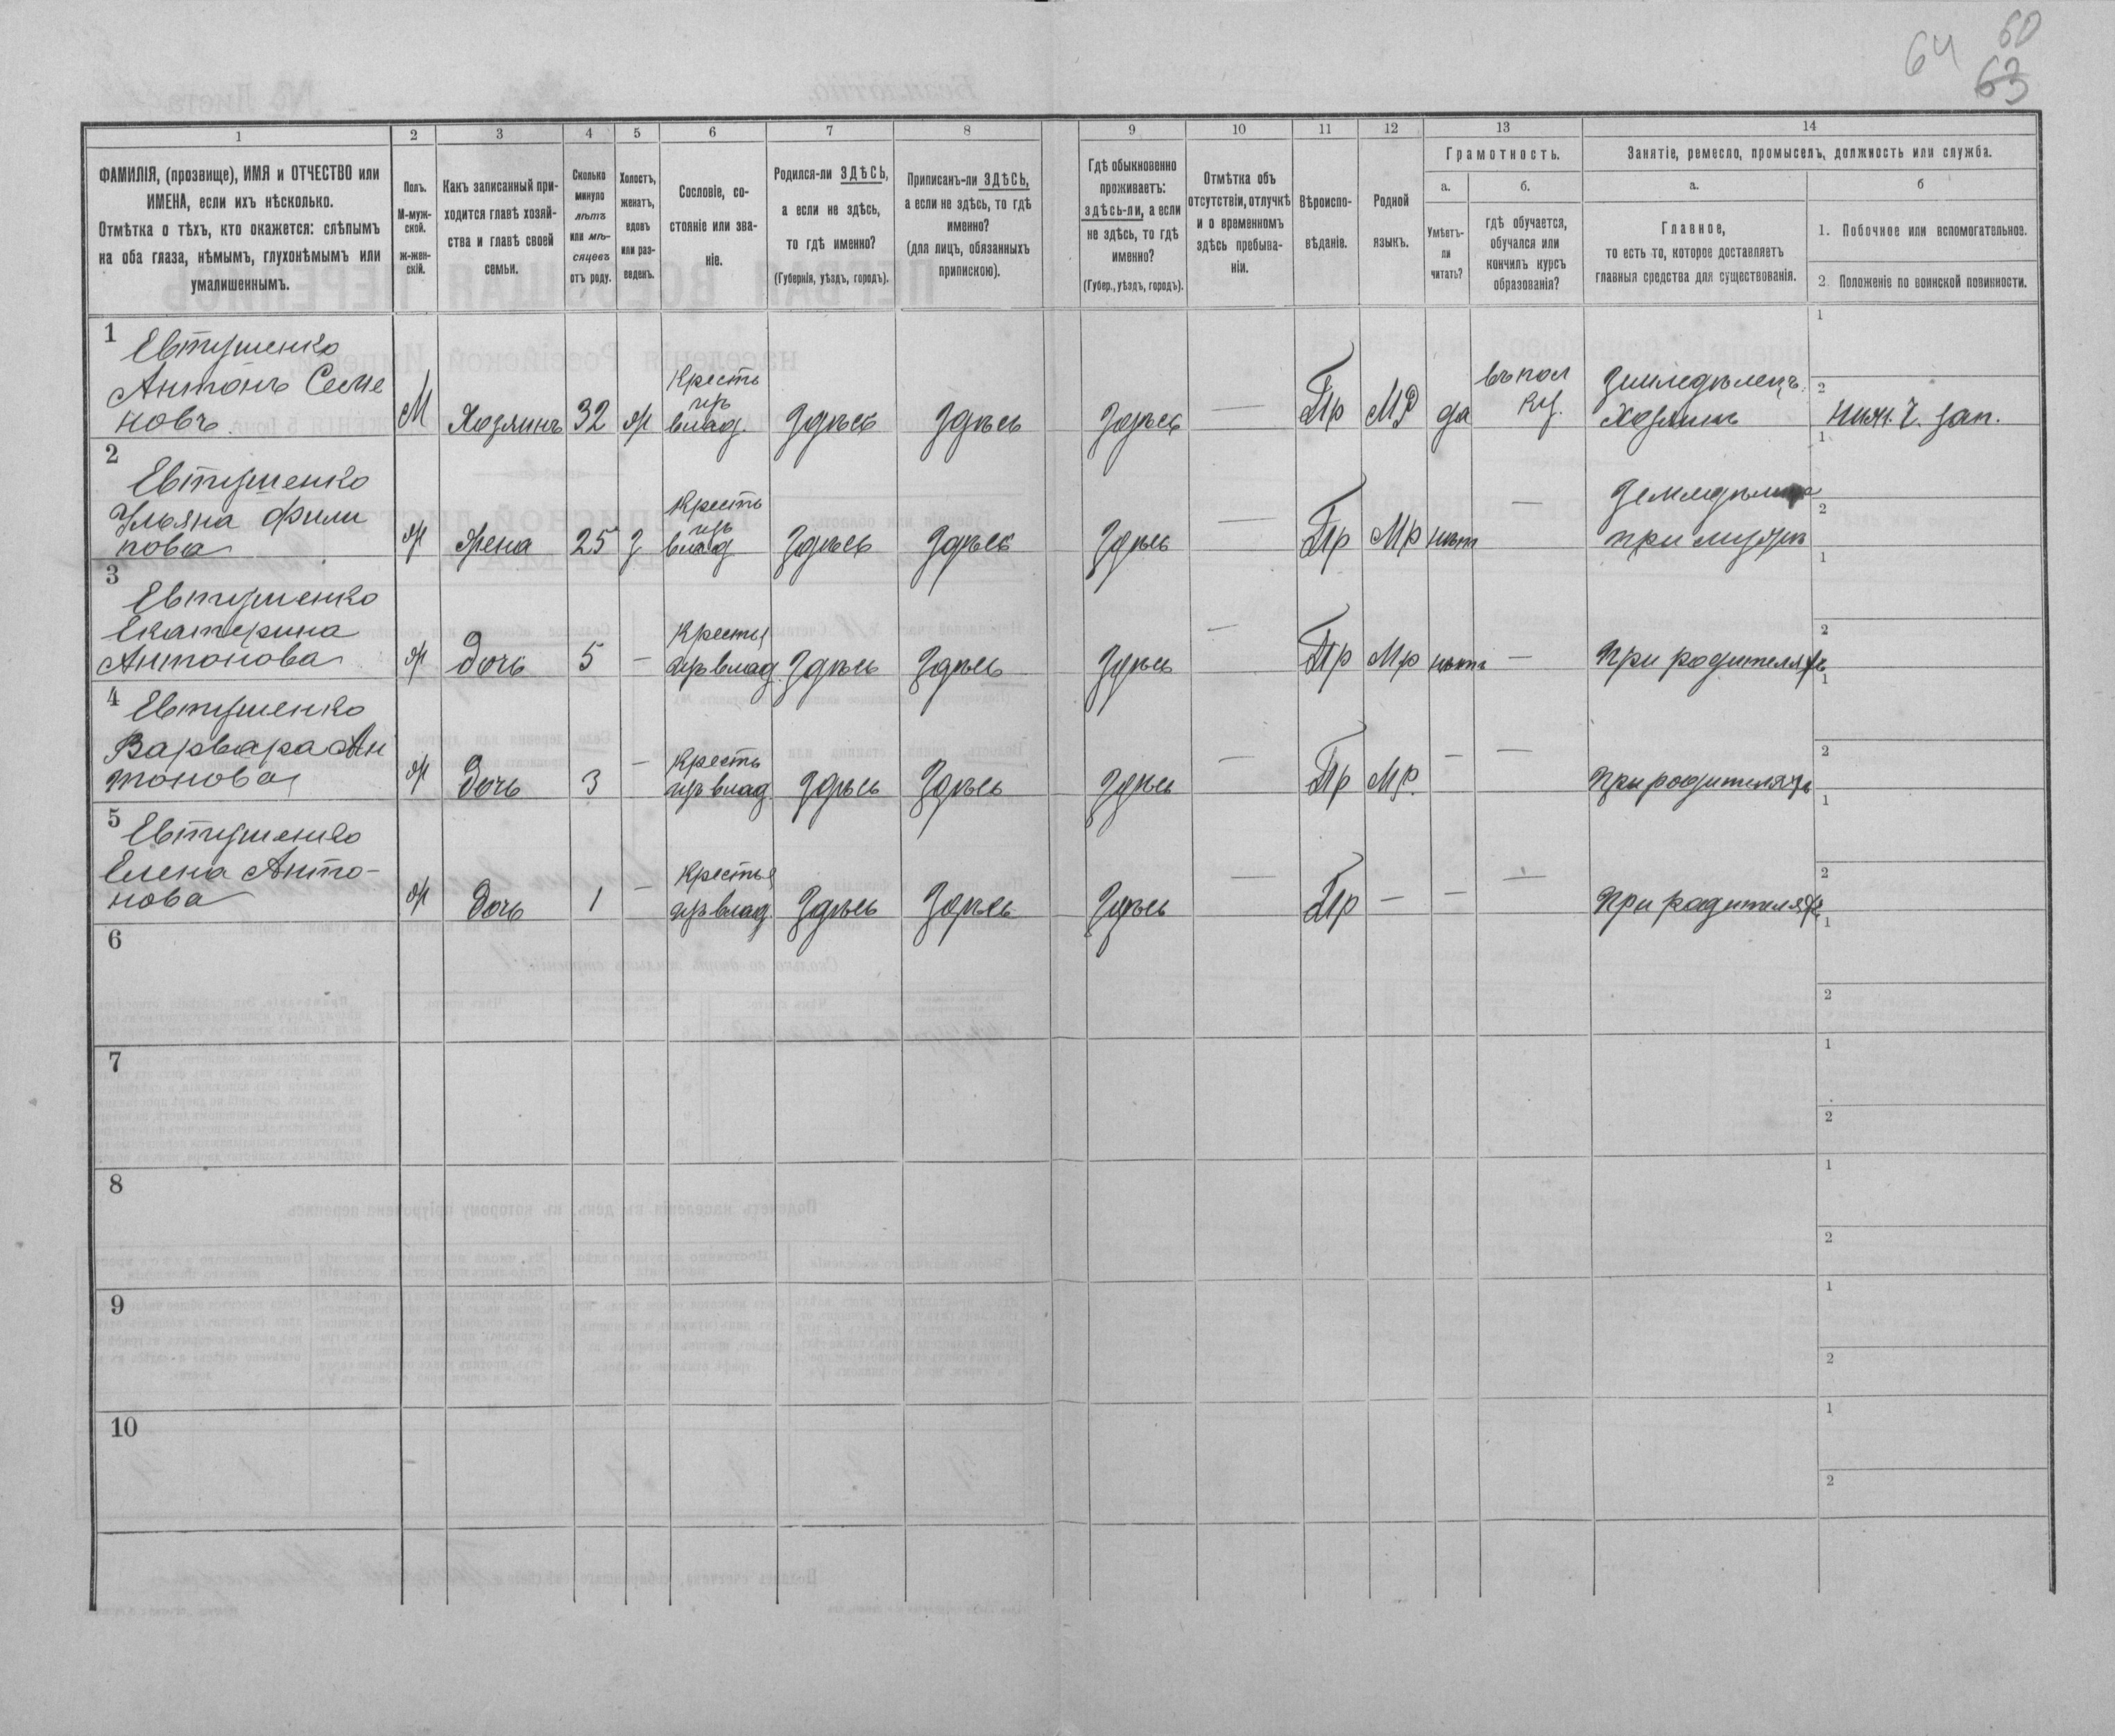 64 60
63
1 2 3 4 5 6 7 8 9 10 11 12 13 14
ФАМИЛІЯ, (прозвище), ИМЯ и ОТЧЕСТВО или
ИМЕНА, если ихъ нѣсколько.
Отмѣтка о тѣхъ, кто окажется: слѣпымъ
на оба глаза, нѣмымъ, глухонѣмымъ или
умалишеннымъ.
Полъ.
М-муж-
ской.
ж-жен-
скій.
Какъ записанный при-
ходится главѣ хозяй-
ства и главѣ своей
семьи.
Сколько
минуло
лѣтъ
или мѣ-
сяцевъ
отъ роду.
Холостъ,
женатъ,
вдовъ
или раз-
веденъ.
Сословіе, со-
стояніе или зва-
ніе.
Родился-ли ЗДѢСЬ,
а если не здѣсь,
то гдѣ именно?
(Губернія, уѣздъ, городъ).
Приписанъ-ли ЗДѢСЬ,
а если не здѣсь, то гдѣ
именно?
(для лицъ, обязанныхъ
припискою).
Гдѣ обыкновенно
проживаетъ:
здѣсь-ли, а если
не здѣсь, то гдѣ
именно?
(Губер., уѣздъ, городъ).
Отмѣтка объ
отсутствіи, отлучкѣ
и о временномъ
здѣсь пребыва-
ніи.
Вѣроиспо-
вѣданіе.
Родной
языкъ.
Грамотность.
а.
Умѣетъ-
ли
читать?
б.
гдѣ обучается,
обучался или
кончилъ курсъ
образованія?
Занятіе, ремесло, промыселъ, должность или служба.
а.
Главное,
то есть то, которое доставляетъ
главныя средства для существованія.
б
1. Побочное или вспомогательное.
2. Положеніе по воинской повинности.
1
Евтушенко
Антонъ Семе
новъ
М
Хозяинъ
32
ж
Кресть
изъ
влад.
Здѣсь
Здѣсь
Здѣсь
—
Пр
МР
да
въ пол
ку.
Земледѣлецъ
Хозяинъ
1
2
нижн. ч. зап.
2
Евтушенко
Ульяна Фили
пова
ж
Жена
25
з
Кресть
изъ
влад
Здѣсь
Здѣсь
Здѣсь
—
Пр
Мр
нѣт
—
при мужѣ
1
2
3
Евтушенко
Екатерина
Антонова
ж
Дочь
5
—
Крестья
изъ влад.
Здѣсь
Здѣсь
Здѣсь
—
Пр
Мр
нѣтъ
—
При родителяхъ
1
2
4
Евтушенко
Варвара Ан
тонова
ж
Дочь
3
—
Кресть
изъ влад.
Здѣсь
Здѣсь
Здѣсь
—
Пр
Мр.
—
—
При родителяхъ
1
2
5
Евтушенко
Елена Анто-
нова
ж
Дочь
1
—
Крестья
изъ влад.
Здѣсь
Здѣсь
Здѣсь
—
Пр
—
—
—
При родителяхъ
1
2
6
1
2
7
1
2
8
1
2
9
1
2
10
1
2